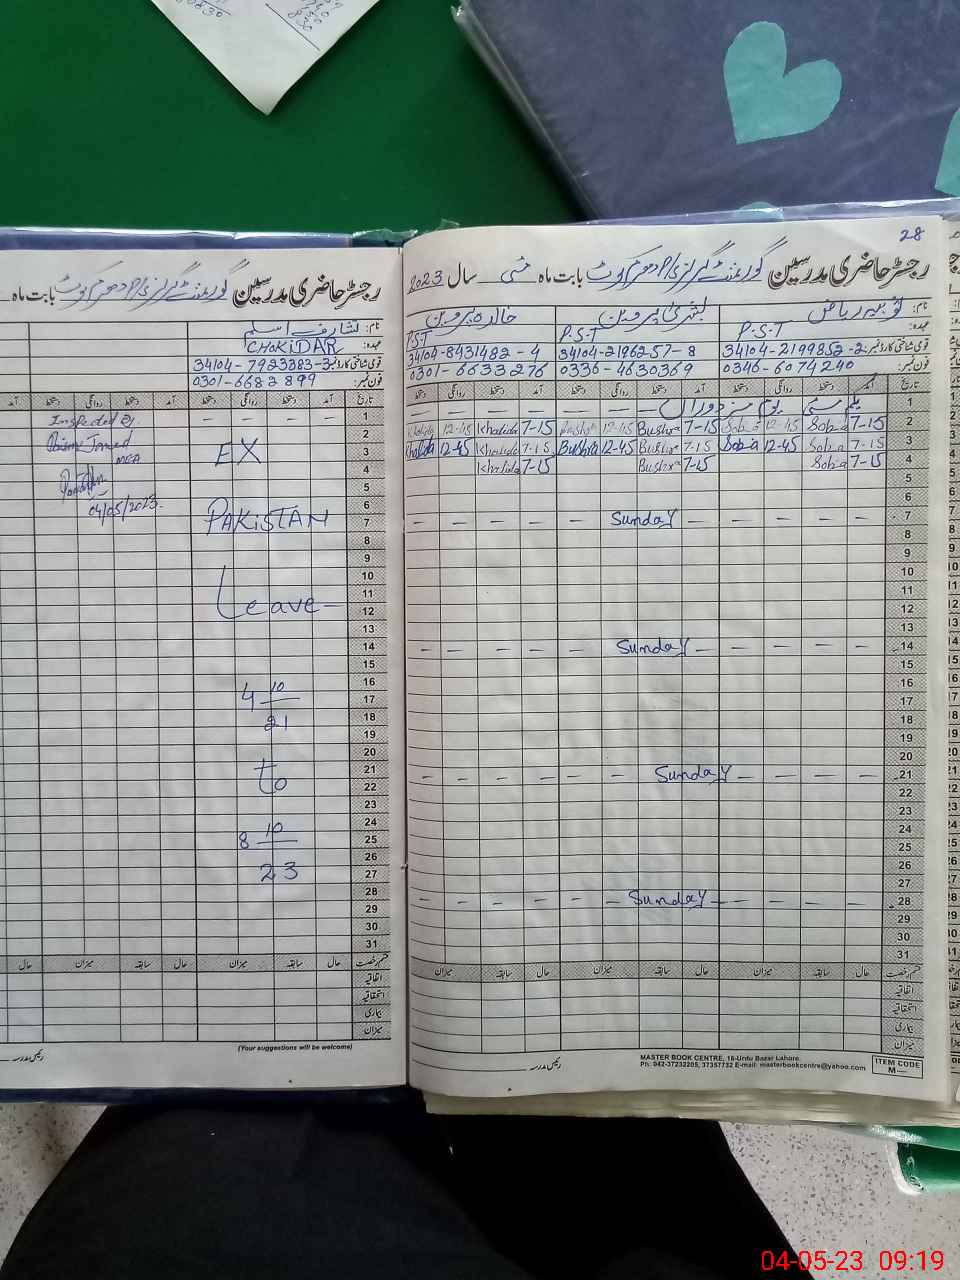 28
رجسٹر حاضری مدرسین گورنمنٹ گرلز بابت ماہ مئی سال 2023
نام: ثوبیہ ریاض بشریٰ پروین خالدہ پروین
عہدہ: P.S.T P.S.T P.S.T
قومی شناختی کارڈ نمبر: 34104-2199852-2 34104-2196257-8 34104-8431482-4
فون نمبر: 0346-6074240 0336-4630369 0301-6633276
تاریخ آمد دستخط روانگی دستخط آمد دستخط روانگی دستخط آمد دستخط روانگی دستخط
1 یکم مئی یوم مزدوراں
2 7-15 Sobia 12-45 Sobia 7-15 Bushra 12-45 Bushra 7-15 Khalida 12-45 Khalida
3 7-15 Sobia 12-45 Sobia 7-15 Bushra 12-45 Bushra 7-15 Khalida 12-45 Khalida
4 7-15 Sobia 7-15 Bushra 7-15 Khalida
5
6
7 Sunday
8
9
10
11
12
13
14 Sunday
15
16
17
18
19
20
21 Sunday
22
23
24
25
26
27
28 Sunday
29
30
31
قسم رخصت حال سابقہ میزان حال سابقہ میزان حال سابقہ میزان
اتفاقیہ
استحقاقیہ
بیماری
میزان
رئیس مدرسہ
MASTER BOOK CENTRE, 16-Urdu Bazar Lahore.
Ph: 042-37232205, 37357732 E-mail: masterbookcentre@yahoo.com
ITEM CODE
M—
رجسٹر حاضری مدرسین گورنمنٹ گرلز بابت ماہ
نام:
عہدہ: CHOKIDAR
قومی شناختی کارڈ نمبر: 34104-7923383-3
فون نمبر: 0301-6682899
تاریخ آمد دستخط روانگی دستخط آمد دستخط روانگی دستخط آمد
1
2
3
4
5
6
7
8
9
10
11
12
13
14
15
16
17
18
19
20
21
22
23
24
25
26
27
28
29
30
31
EX
PAKISTAN
Leave
4 10
21
to
8 10
23
Inspected By
MEA
04/05/2023.
قسم رخصت حال سابقہ میزان حال سابقہ میزان حال
اتفاقیہ
استحقاقیہ
بیماری
میزان
(Your suggestions will be welcome)
رئیس مدرسہ
04-05-23 09:19